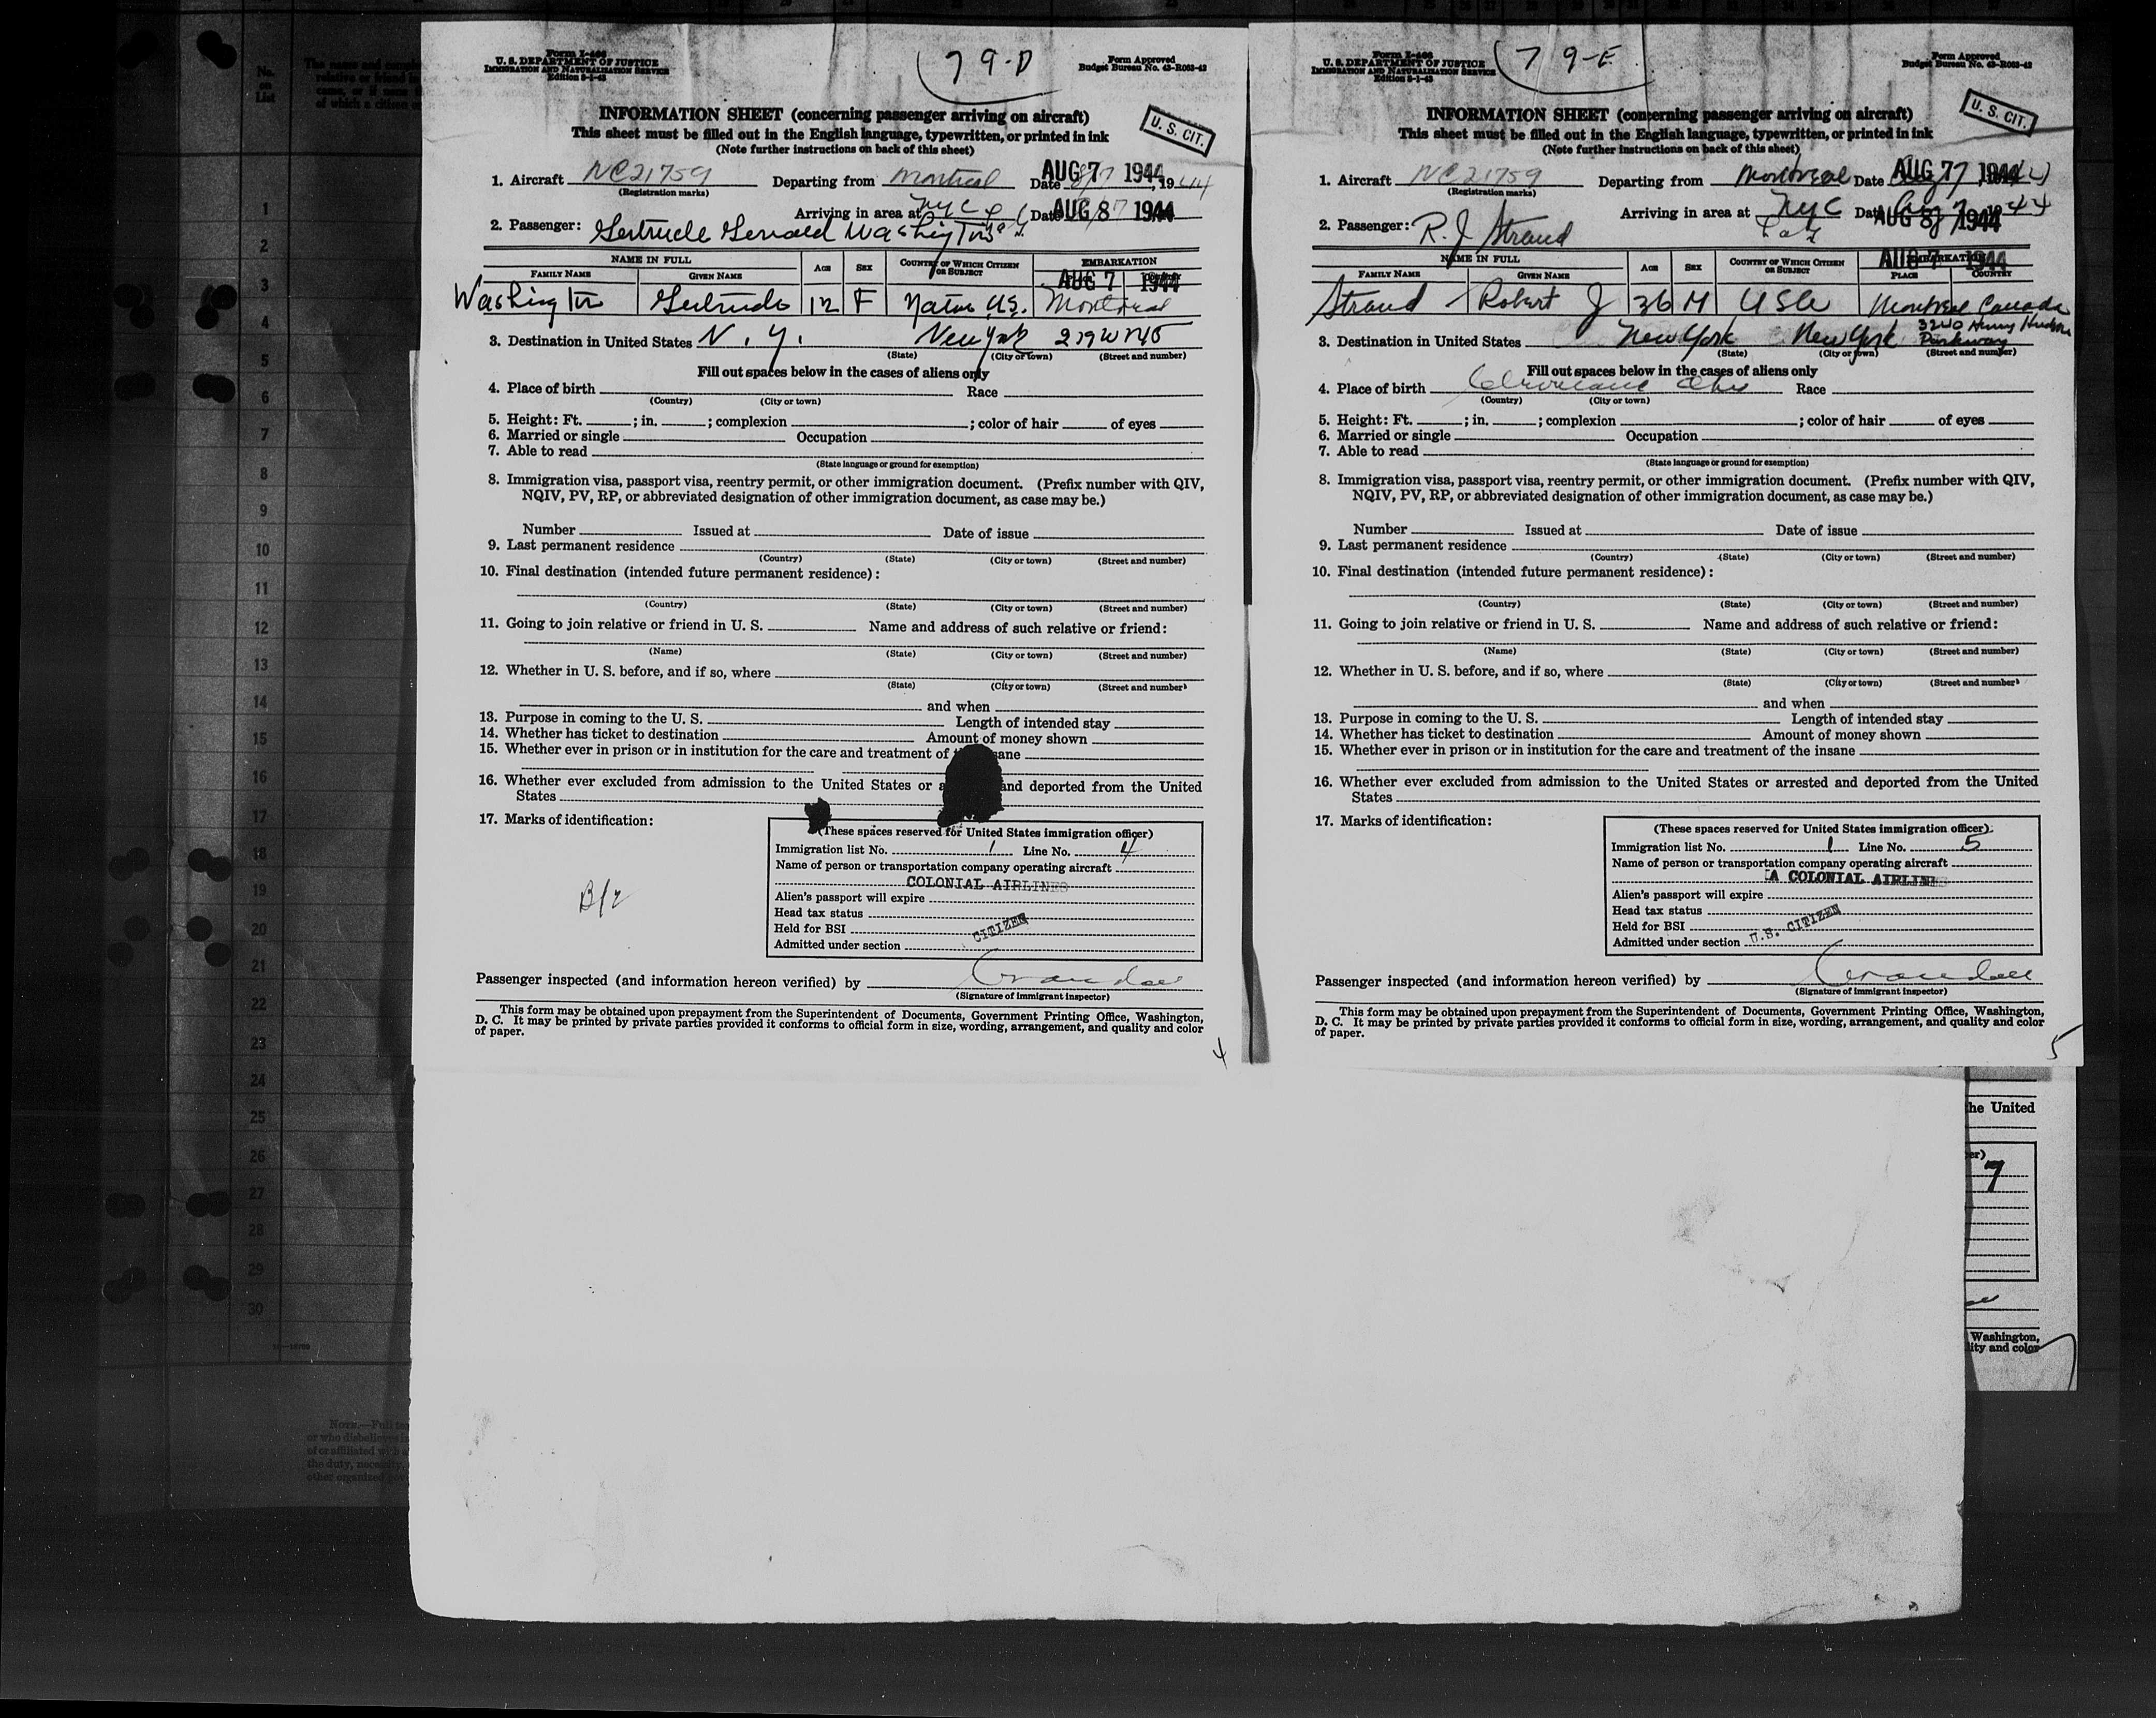 No.
on
List
1
2
3
4
5
6
7
8
9
10
11
12
13
14
15
16
17
18
19
20
21
22
23
24
25
26
27
28
29
30
Form I-466
U. S. DEPARTMENT OF JUSTICE
IMMIGRATION AND NATURALIZATION SERVICE
79-D
Form Approved
Budget Bureau No. 43-R063-42
INFORMATION SHEET (concerning passenger arriving on aircraft)
U. S. CIT.
This sheet must be filled out in the English language, typewritten, or printed in ink
(Note further instructions on back of this sheet)
1. Aircraft NC21759 Departing from Montreal Date 8/7, 1944 AUG 7 1944
(Registration marks)
Arriving in area at NYC Date AUG 8 1944
2. Passenger: Gertrude Gerrald Washington
NAME IN FULL AGE SEX COUNTRY OF WHICH CITIZEN OR SUBJECT EMBARKATION
FAMILY NAME GIVEN NAME AUG 7 1944
Washington Gertrude 12 F Native U.S. Montreal
3. Destination in United States N. Y. New York 279 W 145
(State) (City or town) (Street and number)
Fill out spaces below in the cases of aliens only
4. Place of birth Race
(Country) (City or town)
5. Height: Ft. ; in. ; complexion ; color of hair of eyes
6. Married or single Occupation
7. Able to read
(State language or ground for exemption)
8. Immigration visa, passport visa, reentry permit, or other immigration document. (Prefix number with QIV,
NQIV, PV, RP, or abbreviated designation of other immigration document, as case may be.)
Number Issued at Date of issue
9. Last permanent residence
(Country) (State) (City or town) (Street and number)
10. Final destination (intended future permanent residence):
(Country) (State) (City or town) (Street and number)
11. Going to join relative or friend in U. S. Name and address of such relative or friend:
(Name) (State) (City or town) (Street and number)
12. Whether in U. S. before, and if so, where
(State) (City or town) (Street and number)
and when
13. Purpose in coming to the U. S. Length of intended stay
14. Whether has ticket to destination Amount of money shown
15. Whether ever in prison or in institution for the care and treatment of
16. Whether ever excluded from admission to the United States or and deported from the United
States
17. Marks of identification:
(These spaces reserved for United States immigration officer)
Immigration list No. 1 Line No. 4
Name of person or transportation company operating aircraft
COLONIAL AIRLINES
Alien's passport will expire
Head tax status
Held for BSI
CITIZEN
Admitted under section
Passenger inspected (and information hereon verified) by
(Signature of immigrant inspector)
This form may be obtained upon prepayment from the Superintendent of Documents, Government Printing Office, Washington,
D. C. It may be printed by private parties provided it conforms to official form in size, wording, arrangement, and quality and color
of paper.
4
Form I-466
U. S. DEPARTMENT OF JUSTICE
IMMIGRATION AND NATURALIZATION SERVICE
79-E
Form Approved
Budget Bureau No. 43-R063-42
INFORMATION SHEET (concerning passenger arriving on aircraft)
U. S. CIT.
This sheet must be filled out in the English language, typewritten, or printed in ink
(Note further instructions on back of this sheet)
1. Aircraft NC21759 Departing from Montreal Date Aug 7, 1944 AUG 7 1944
(Registration marks)
Arriving in area at NYC Date Aug 7 1944 AUG 8 1944
2. Passenger: R. J Strand
NAME IN FULL AGE SEX COUNTRY OF WHICH CITIZEN OR SUBJECT EMBARKATION
FAMILY NAME GIVEN NAME AUG 7 1944 PLACE COUNTRY
Strand Robert J 36 M USA Montreal Canada
3. Destination in United States New York New York 3240 Henry Hudson Parkway
(State) (City or town) (Street and number)
Fill out spaces below in the cases of aliens only
4. Place of birth Race
(Country) (City or town)
5. Height: Ft. ; in. ; complexion ; color of hair of eyes
6. Married or single Occupation
7. Able to read
(State language or ground for exemption)
8. Immigration visa, passport visa, reentry permit, or other immigration document. (Prefix number with QIV,
NQIV, PV, RP, or abbreviated designation of other immigration document, as case may be.)
Number Issued at Date of issue
9. Last permanent residence
(Country) (State) (City or town) (Street and number)
10. Final destination (intended future permanent residence):
(Country) (State) (City or town) (Street and number)
11. Going to join relative or friend in U. S. Name and address of such relative or friend:
(Name) (State) (City or town) (Street and number)
12. Whether in U. S. before, and if so, where
(State) (City or town) (Street and number)
and when
13. Purpose in coming to the U. S. Length of intended stay
14. Whether has ticket to destination Amount of money shown
15. Whether ever in prison or in institution for the care and treatment of the insane
16. Whether ever excluded from admission to the United States or arrested and deported from the United
States
17. Marks of identification:
(These spaces reserved for United States immigration officer)
Immigration list No. 1 Line No. 5
Name of person or transportation company operating aircraft
A COLONIAL AIRLINES
Alien's passport will expire
Head tax status
Held for BSI
U.S. CITIZEN
Admitted under section
Passenger inspected (and information hereon verified) by
(Signature of immigrant inspector)
This form may be obtained upon prepayment from the Superintendent of Documents, Government Printing Office, Washington,
D. C. It may be printed by private parties provided it conforms to official form in size, wording, arrangement, and quality and color
of paper.
5
he United
er)
7
Washington,
lity and color